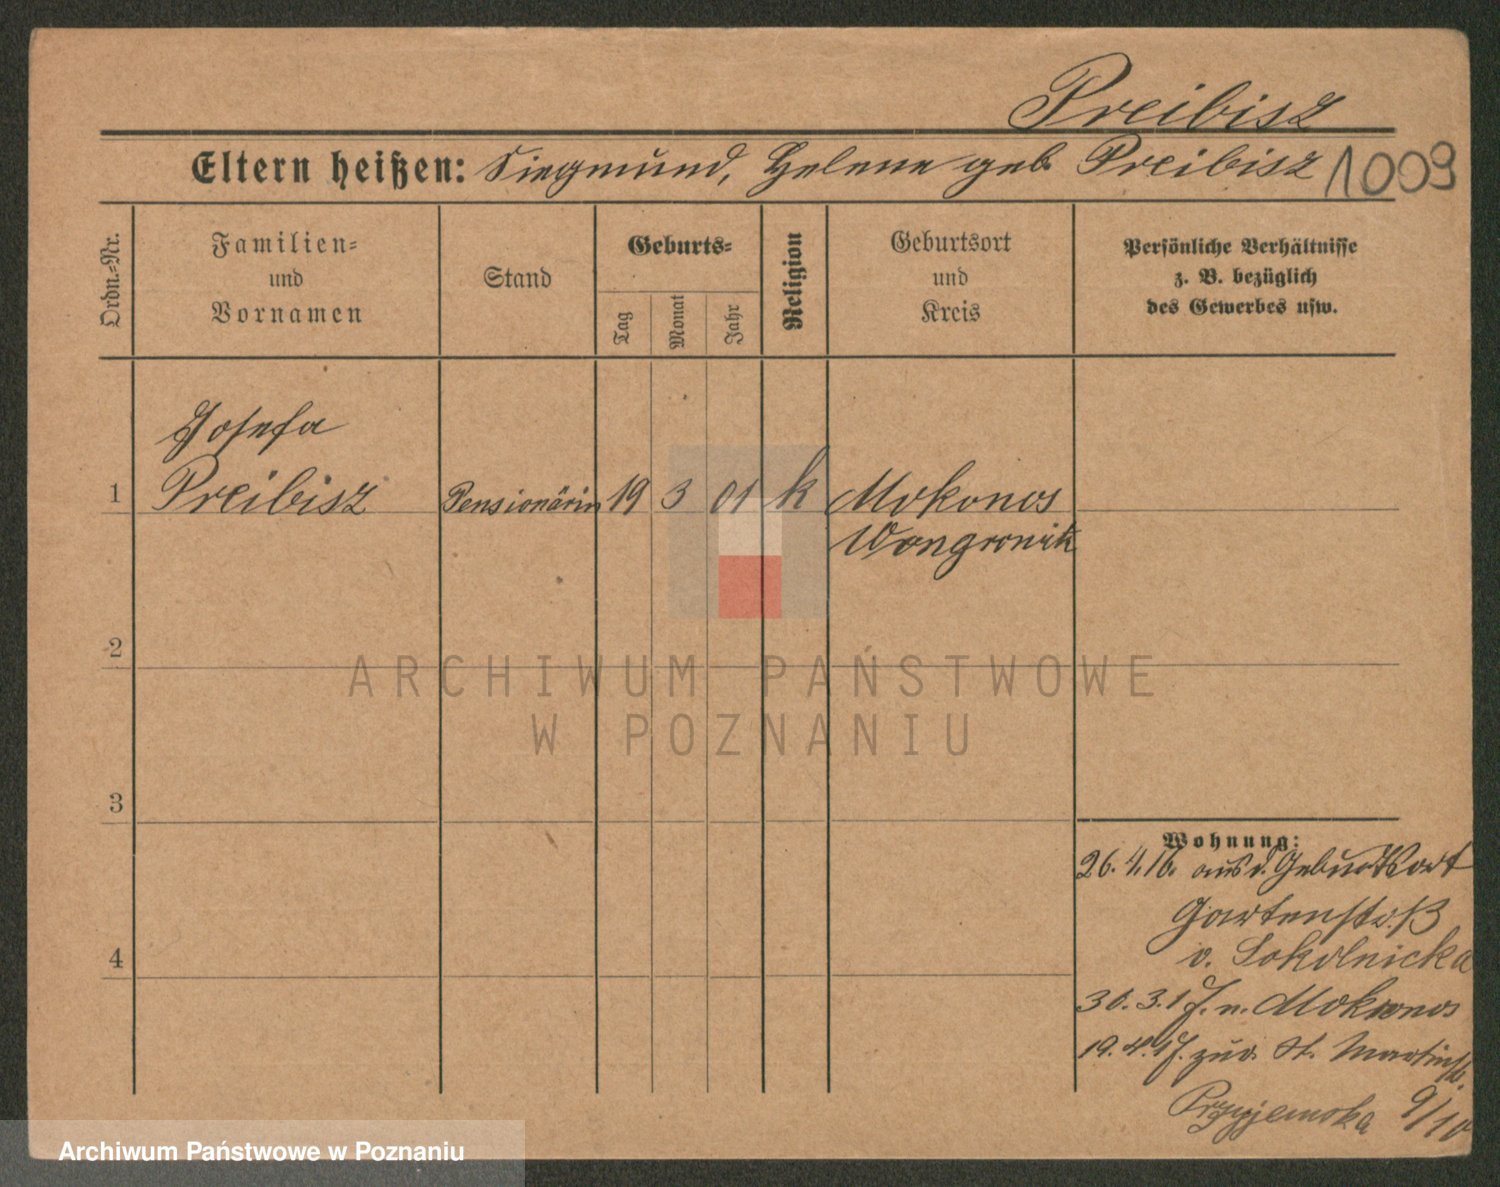 Preibisz
Eltern heißen: Siegmund, Helene geb Preibisz 1009
Ordn.=Nr.
Familien=
und
Vornamen
Stand
Geburts=
Tag
Monat
Jahr
Religion
Geburtsort
und
Kreis
Persönliche Verhältnisse
z. B. bezüglich
des Gewerbes usw.
Josefa
1 Preibisz Pensionärin 19 3 01 k Mokonos
Wongrowitz
2
3
4
Wohnung:
26.4.16. aus d. Geburtsort
Gartenstr.
v. Sokolnicka
30.3.17. n. Mokronos
19.4.17. zur. St. Martinstr.
Przyjemska 9/10
ARCHIWUM PAŃSTWOWE
W POZNANIU
Archiwum Państwowe w Poznaniu